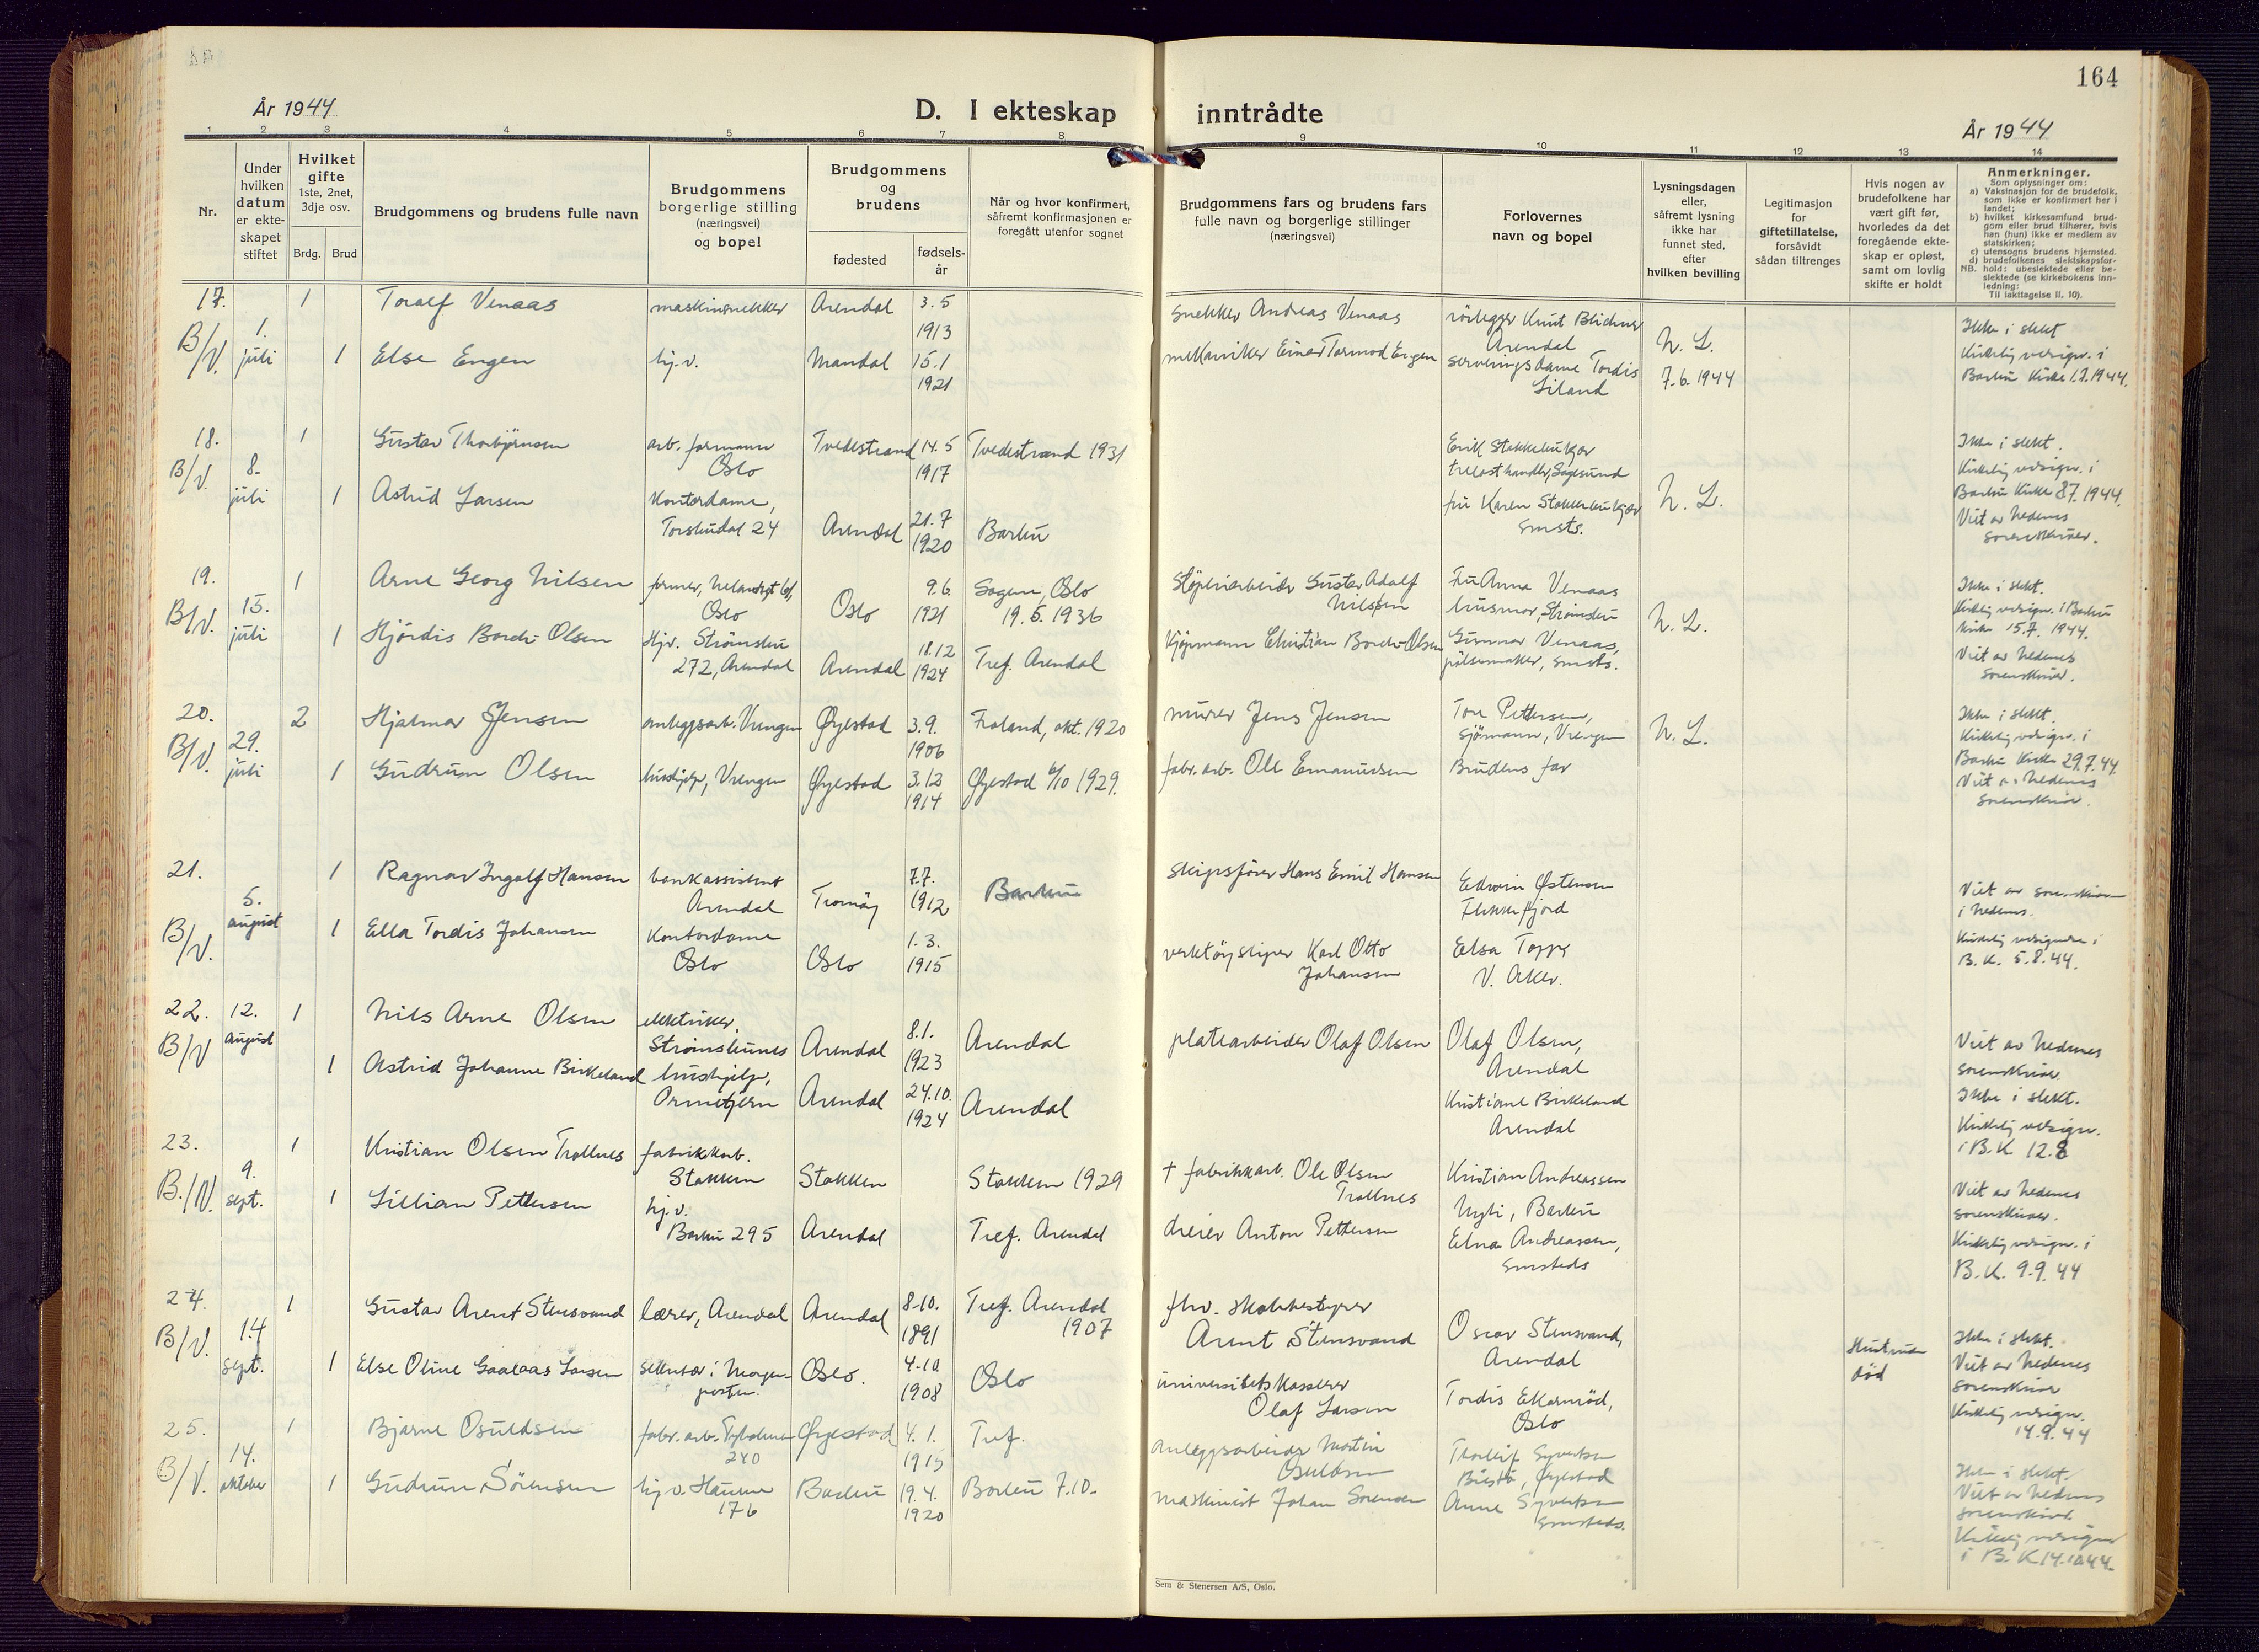 164
År 1944
D. I ekteskap inntrådte
År 1944
1 2 3 4 5 6 7 8 9 10 11 12 13 14
Nr.
Under
hvilken
datum
er ekte-
skapet
stiftet
Hvilket
gifte
1ste, 2net,
3dje osv.
Brdg. Brud
Brudgommens og brudens fulle navn
Brudgommens
borgerlige stilling
(næringsvei)
og bopel
Brudgommens
og
brudens
fødested
fødsels-
år
Når og hvor konfirmert,
såfremt konfirmasjonen er
foregått utenfor sognet
Brudgommens fars og brudens fars
fulle navn og borgerlige stillinger
(næringsvei)
Forlovernes
navn og bopel
Lysningsdagen
eller,
såfremt lysning
ikke har
funnet sted,
efter
hvilken bevilling
Legitimasjon
for
giftetillatelse,
forsåvidt
sådan tiltrenges
Hvis nogen av
brudefolkene har
vært gift før,
hvorledes da det
foregående ekte-
skap er opløst,
samt om lovlig
skifte er holdt
Anmerkninger.
Som oplysninger om:
a) Vaksinasjon for de brudefolk,
som ikke er konfirmert her i
landet;
b) hvilket kirkesamfund brud-
gom eller brud tilhører, hvis
han (hun) ikke er medlem av
statskirken;
c) utensogns brudens hjemsted.
d) brudefolkenes slektskapsfor-
NB. hold: ubeslektede eller be-
slektede (se kirkebokens inn-
ledning:
Til iakttagelse II, 10).
17. 1 Toralf Venaas maskinsnekker Arendal 3.5 1913 snekker Andreas Venaas rørlegger Knut Arendal
B/V. 1. juli 1 Else Engen hj.v. Mandal 15.1 1921 mekaniker Einar Tormod Engen serveringsdame Tordis Liland
N. L. 7.6.1944
Ikke i slekt
Kirkelig velsign. i
Barbu Kirke 1.7.1944.
18. 1 Gustav Thorbjørnsen arb. formann Oslo Tvedestrand 14.5 1917 Tvedestrand 1931 Erik trelasthandler, Sagesund
B/V. 8. juli 1 Astrid Larsen Kontordame, Torskudal 24 Arendal 21.7 1920 Barbu fru Karen smsts.
N. L.
Ikke i slekt.
Kirkelig velsign. i
Barbu Kirke 8.7.1944.
Viet av Nedenes
sorenskriver.
19. 1 Arne Georg Nilsen former, Oslo Oslo 9.6. 1921 Sagene, Oslo 19.5.1936 Støperiarbeider Gustav Adolf Nilsen Fru Anna Venaas husmor, Strømsbu
B/V. 15. juli 1 Hjördis Olsen Hjv. Strømsbu 272, Arendal Arendal 18.12 1924 Tref. Arendal Kjøpmann Christian Gunnar Venaas, pølsemaker, smsts.
N. L.
Ikke i slekt.
Kirkelig velsign. i Barbu
Kirke 15.7. 1944.
Viet av Nedenes
sorenskriver.
20. 2 Hjalmar Jensen anleggsarb. Vrengen Øyestad 3.9. 1906 Froland, okt. 1920 murer Jens Jensen Tore Pettersen, Sjömann, Vrengen
B/V. 29. juli 1 Gudrun Olsen hushjelp, Vrengen Øyestad 3.12 1914 Øyestad 6/10 1929. fabr. arb. Ole Emanuelsen Brudens far
N. L.
Ikke i slekt.
Kirkelig velsign. i
Barbu Kirke 29.7.44.
Viet av Nedenes
sorenskriver.
21. 1 Ragnar Ingolf Hansen bankassistent Arendal Tromøy 7.7. 1912 Barbu skipsfører Hans Emil Hansen Edwin Østensen Flekkefjord
B/V. 5. august 1 Ella Tordis Johansen Kontordame Oslo Oslo 1.3. 1915 verktøysliper Karl Otto Johansen Elsa Toppe V. Aker.
Viet av sorenskriver
i Nedenes.
Kirkelig velsignelse i
B. K. 5.8.44.
22. 12. august 1 Nils Arne Olsen elektriker, Strømsbunes Arendal 8.1. 1923 Arendal platearbeider Olaf Olsen Olaf Olsen, Arendal
B/V 1 Astrid Johanne Birkeland hushjelp, Ormetjern Arendal 24.10. 1924 Arendal Kristiane Birkeland Arendal
Viet av Nedenes
sorenskriver
Ikke i slekt.
Kirkelig velsign.
i B.K. 12.8
23. 1 Kristian Olsen Trollnes fabrikkarb. Stokken Stokken Stokken 1929 + fabrikkarb. Ole Olsen Trollnes Kristian Andreassen
B./V. 9. sept. 1 Lillian Pettersen hj.v. Barbu 295 Arendal Tref. Arendal dreier Anton Pettersen Barbu Edna Andreassen, smsteds
Viet av Nedenes
sorenskriver.
Kirkelig velsign. i
B.K. 9.9.44
24. 1 Gustav Arent Stensvand lærer, Arendal Arendal 8.10. 1891 Tref. Arendal 1907 fhv. skolebestyrer Arent Stensvand Oscar Stensvand, Arendal
B/V. 14 sept. 1 Else Oline Gaalaas Larsen sekretær i Morgenposten. Oslo. 4.10 1908 Oslo universitetskasserer Olaf Larsen Tordis Oslo
Hustruen
død
Ikke i slekt.
Viet av Nedenes
sorenskriver
Kirkelig velsign.
14.9.44
25. 1 Bjarne Osuldsen fabr. arb. 240 Øyestad 4.1. 1915 Tref. anleggsarbeider Martin Osuldsen Thorleif Syvertsen Øyestad
B/V. 14. oktober 1 Gudrun Sörensen hj.v. 176 Barbu 19.4. 1920 Barbu 7.10. maskinist Johan Sorensen Anne Syvertsen smsteds.
Ikke i slekt.
Viet av Nedenes
sorenskriver.
Kirkelig velsignet
i B.K 14.10.44.
Sem & Stenersen A/S, Oslo.